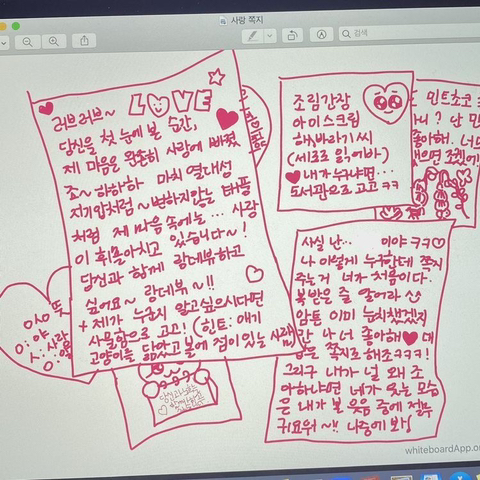 사랑 쪽지
검색
러브러브~ LOVE
당신을 첫 눈에 볼 순간,
제 마음을 완송히 사랑에 빠졌
죠~ 하하하 마치 열대성
저기압처럼 ~ 변하지않는 태풍
처럼 제 마음 속에는... 사랑
이 휘몰아치고 있습니다~!
당신과 함께 랑데뷰하고
싶어요~ 랑데뷰~!!
+ 제가 누군지 알고싶으시다면
사물함으로 고고! (힌트: 애기
고양이를 닮았고 볼에 점이 있는 사람)
조림간장
아이스크림
해바라기씨
(세로로 읽어봐)
내가 누구냐면...
도서관으로 고고 ㅋㅋ
민트초코
니? 난 민
좋아해.
사실 난... 이야 ㅋㅋ
나 이렇게 누구한테 쪽지
주는거 너가 처음이다.
복받은 줄 알아라
암튼 이미 눈치챘겠지
만 나 너 좋아해 대
답은 쪽지로 해조ㅋㅋㅋ!
그리구 내가 널 왜 조
아하냐면 네가 웃는 모습
은 내가 본 웃음 중에 젤루
귀요워~!! 나중에 봐
뜻
야
사랑
whiteboardApp.or